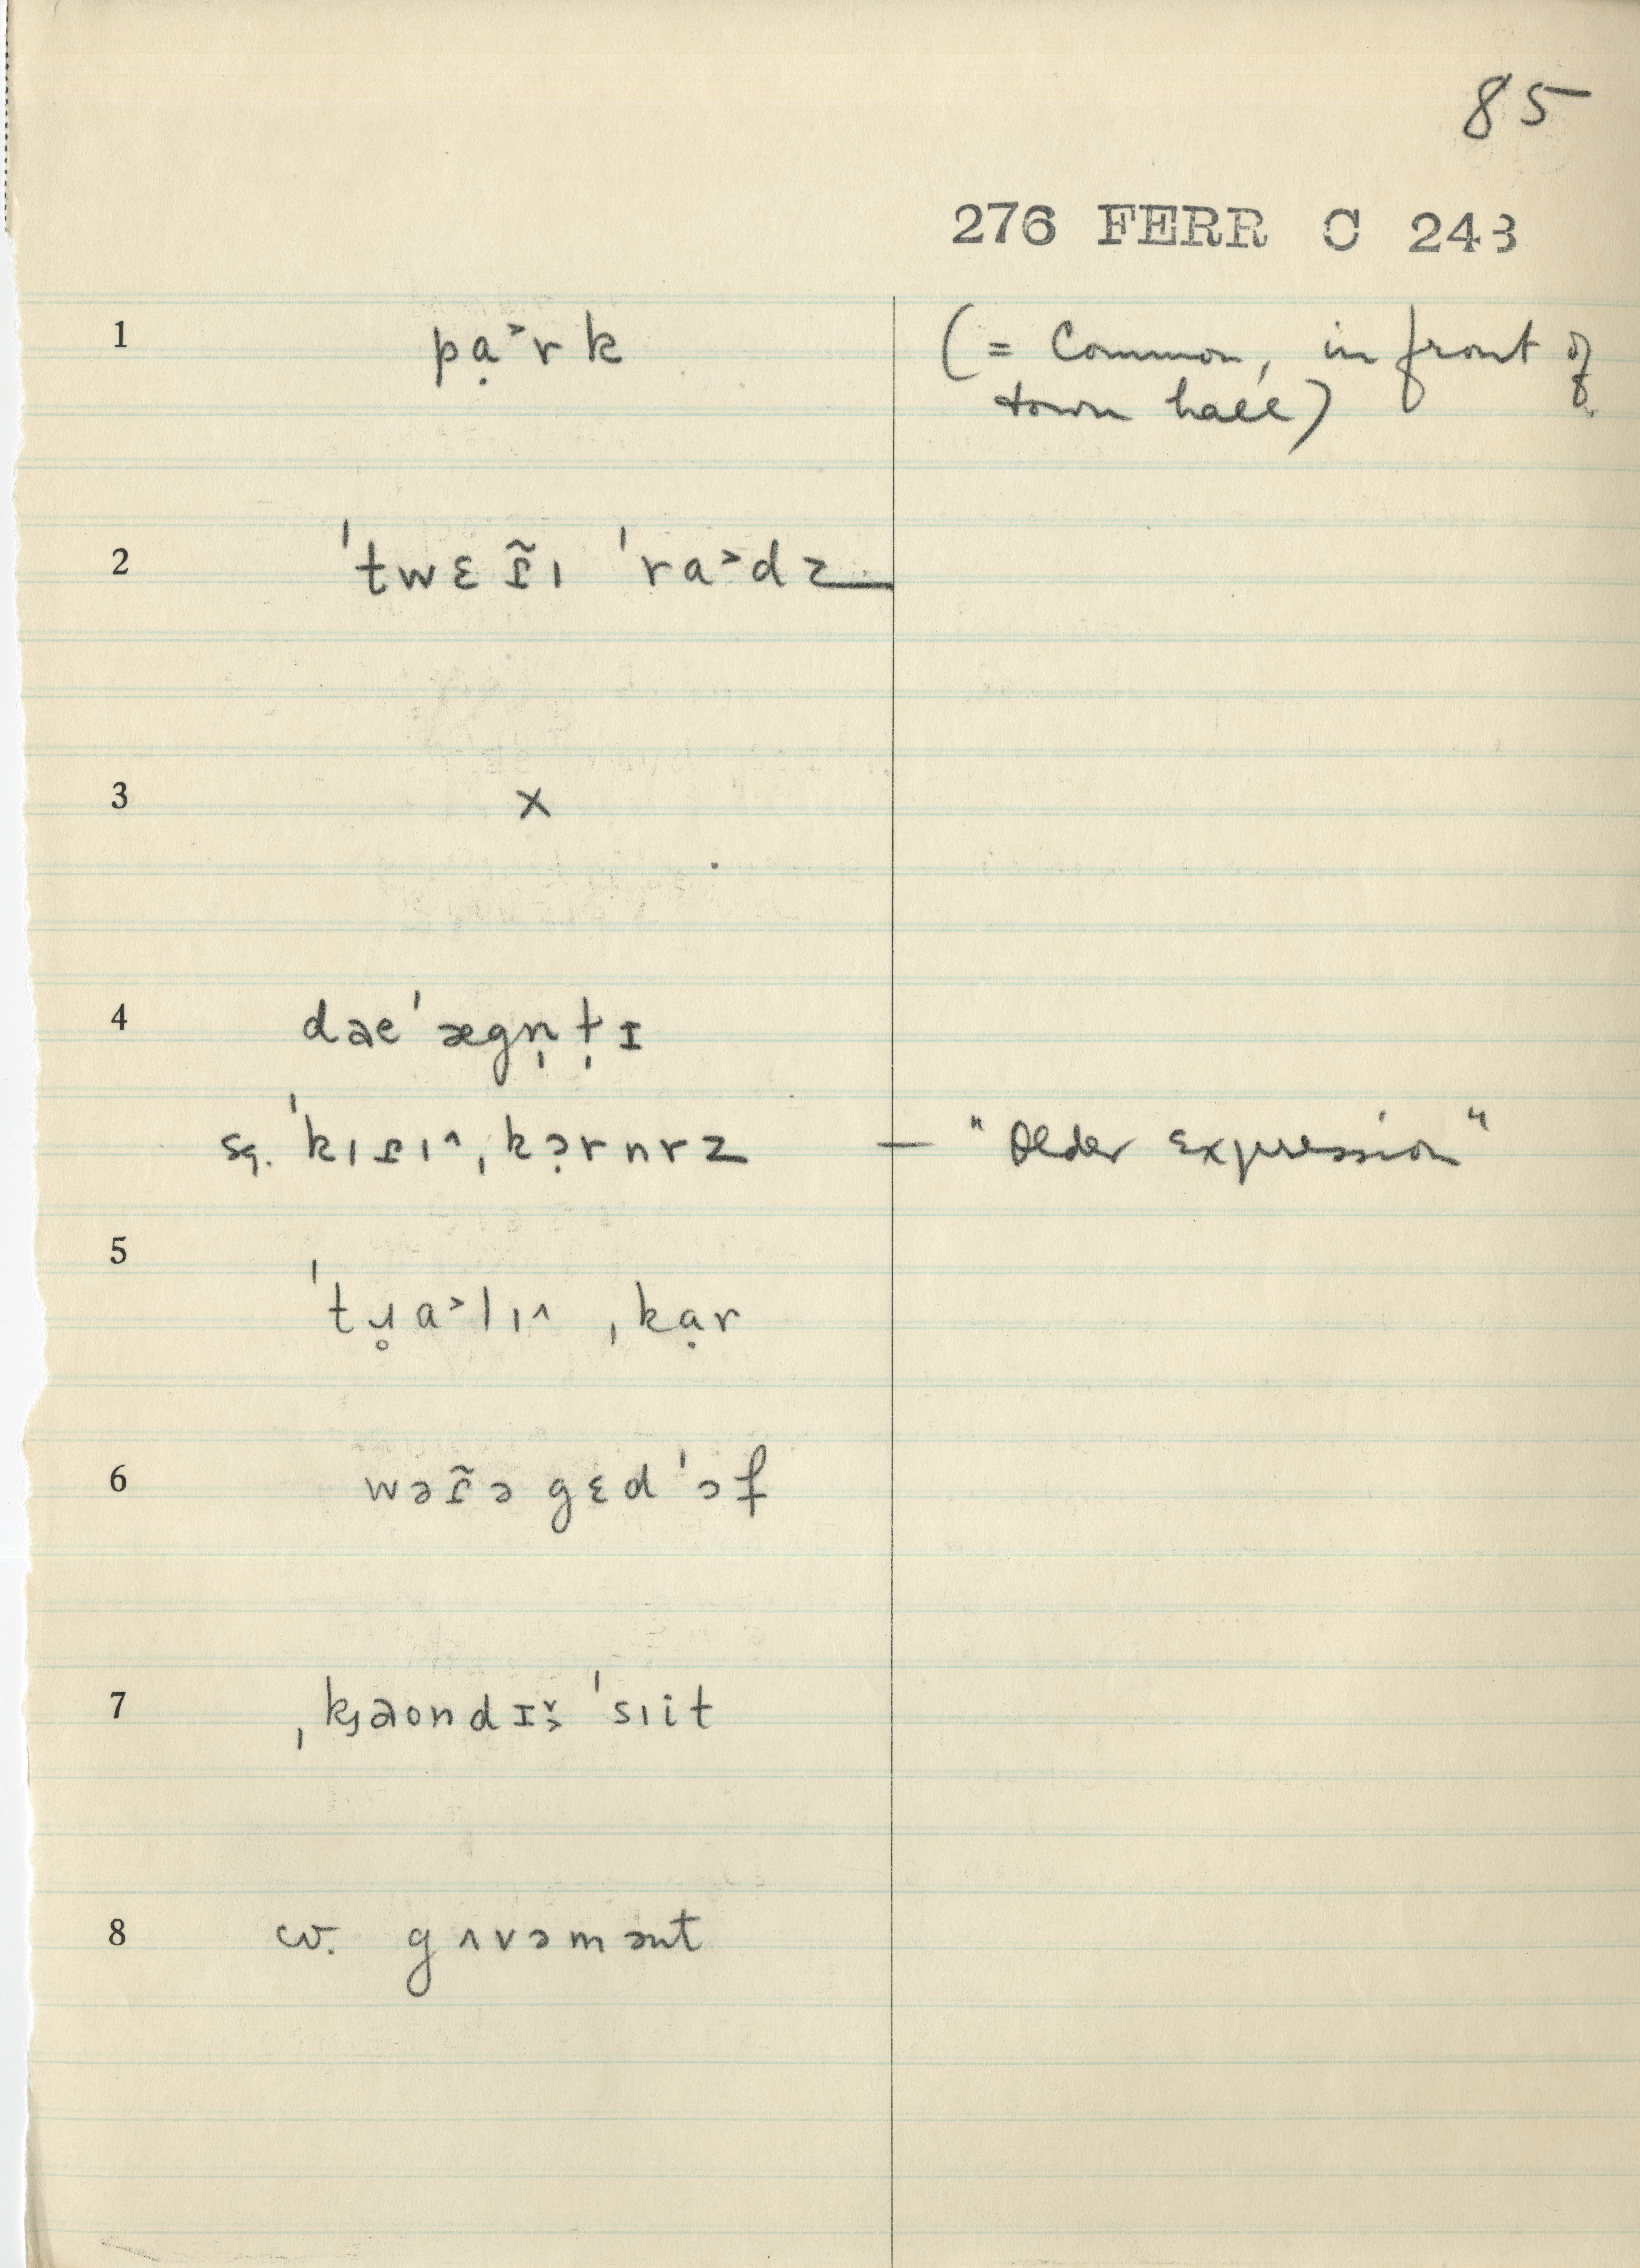 85
276 FERR C 243
1 pạ˃rk (= Common, in front of
town hall)
2 ˈtwɛɾ̃ı ˈra˃dz
3 ×
4 dəeˈægn̩t̩ɪ
sq. ˈkıɾı^ˌkɔ̣rnrz — "Older Expression"
5 ˈtɹ̥a˃lı^ ˌkạr
6 wəɾ̃ə gɛdˈɔf
7 ˌkʒəondɪš˃ ˈsıit
8 cv. gʌvəmənt